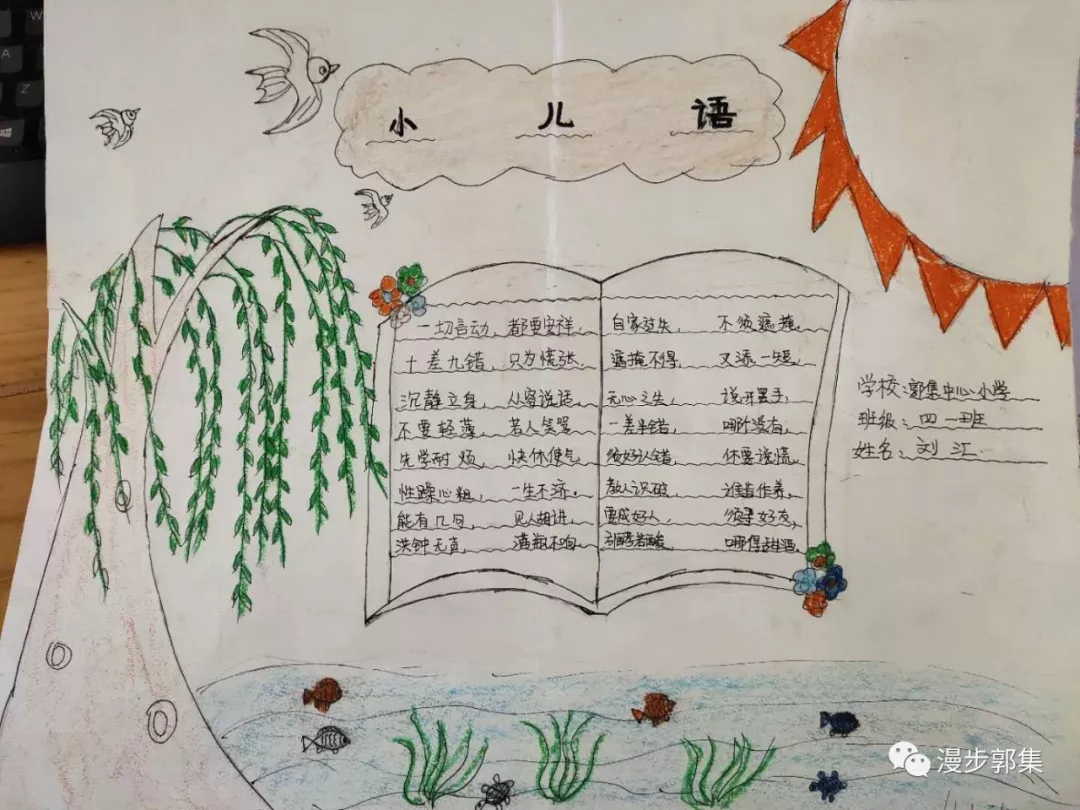 小儿语
一切言动，都要安祥，
十差九错，只为慌张，
沉静立身，从容说话，
不要轻薄，若人笑骂
先学耐烦，快休使气
性躁心粗，一生不济。
能有几句，见人胡讲，
洪钟无声，满瓶不响
自家过失，不须遮掩，
遮掩不得，又添一短，
无心之失，说开罢手，
一差半错，哪个没有，
须好认错，休要说慌，
教人识破，谁肯作养，
要成好人，须寻好友，
引酵若酸，哪得甜酒，
学校：郭集中心小学
班级：四一班
姓名：刘江
漫步郭集